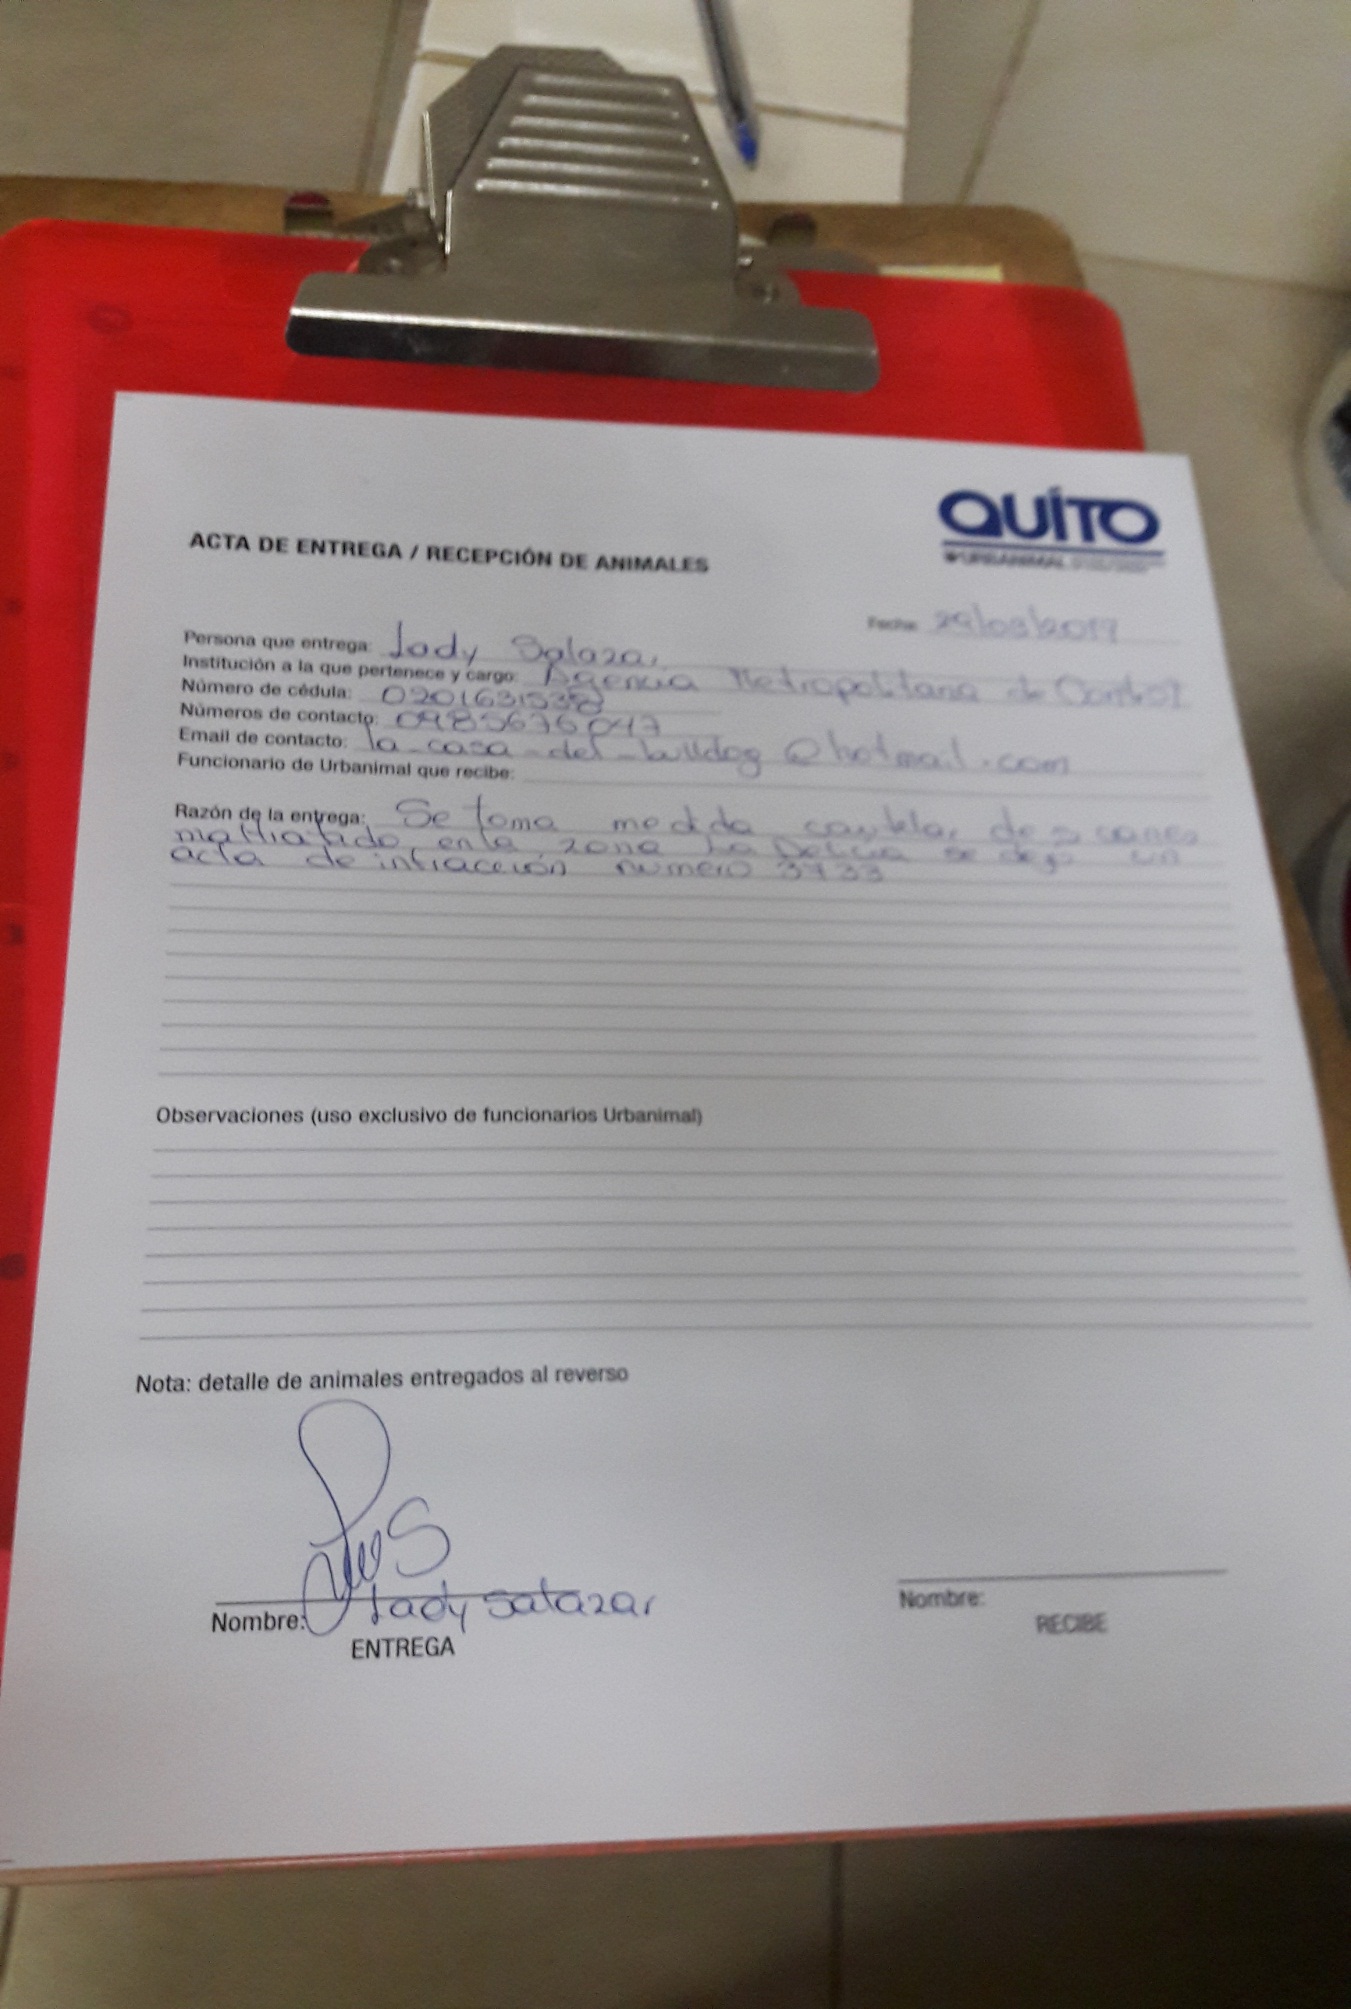 QUÍTO
URBANIMAL
ACTA DE ENTREGA / RECEPCIÓN DE ANIMALES
Fecha: 29/03/2019
Persona que entrega: Lady Salazar
Institución a la que pertenece y cargo: Agencia Metropolitana de Control
Número de cédula:
Números de contacto:
Email de contacto: la_casa_del_bulldog@hotmail.com
Funcionario de Urbanimal que recibe:
Razón de la entrega: Se toma medida cautelar de canes
maltratado en la zona La Delicia se dejo un
acta de infraccción numero 3733
Observaciones (uso exclusivo de funcionarios Urbanimal)
Nota: detalle de animales entregados al reverso
Nombre: Lady Salazar
ENTREGA
Nombre:
RECIBE